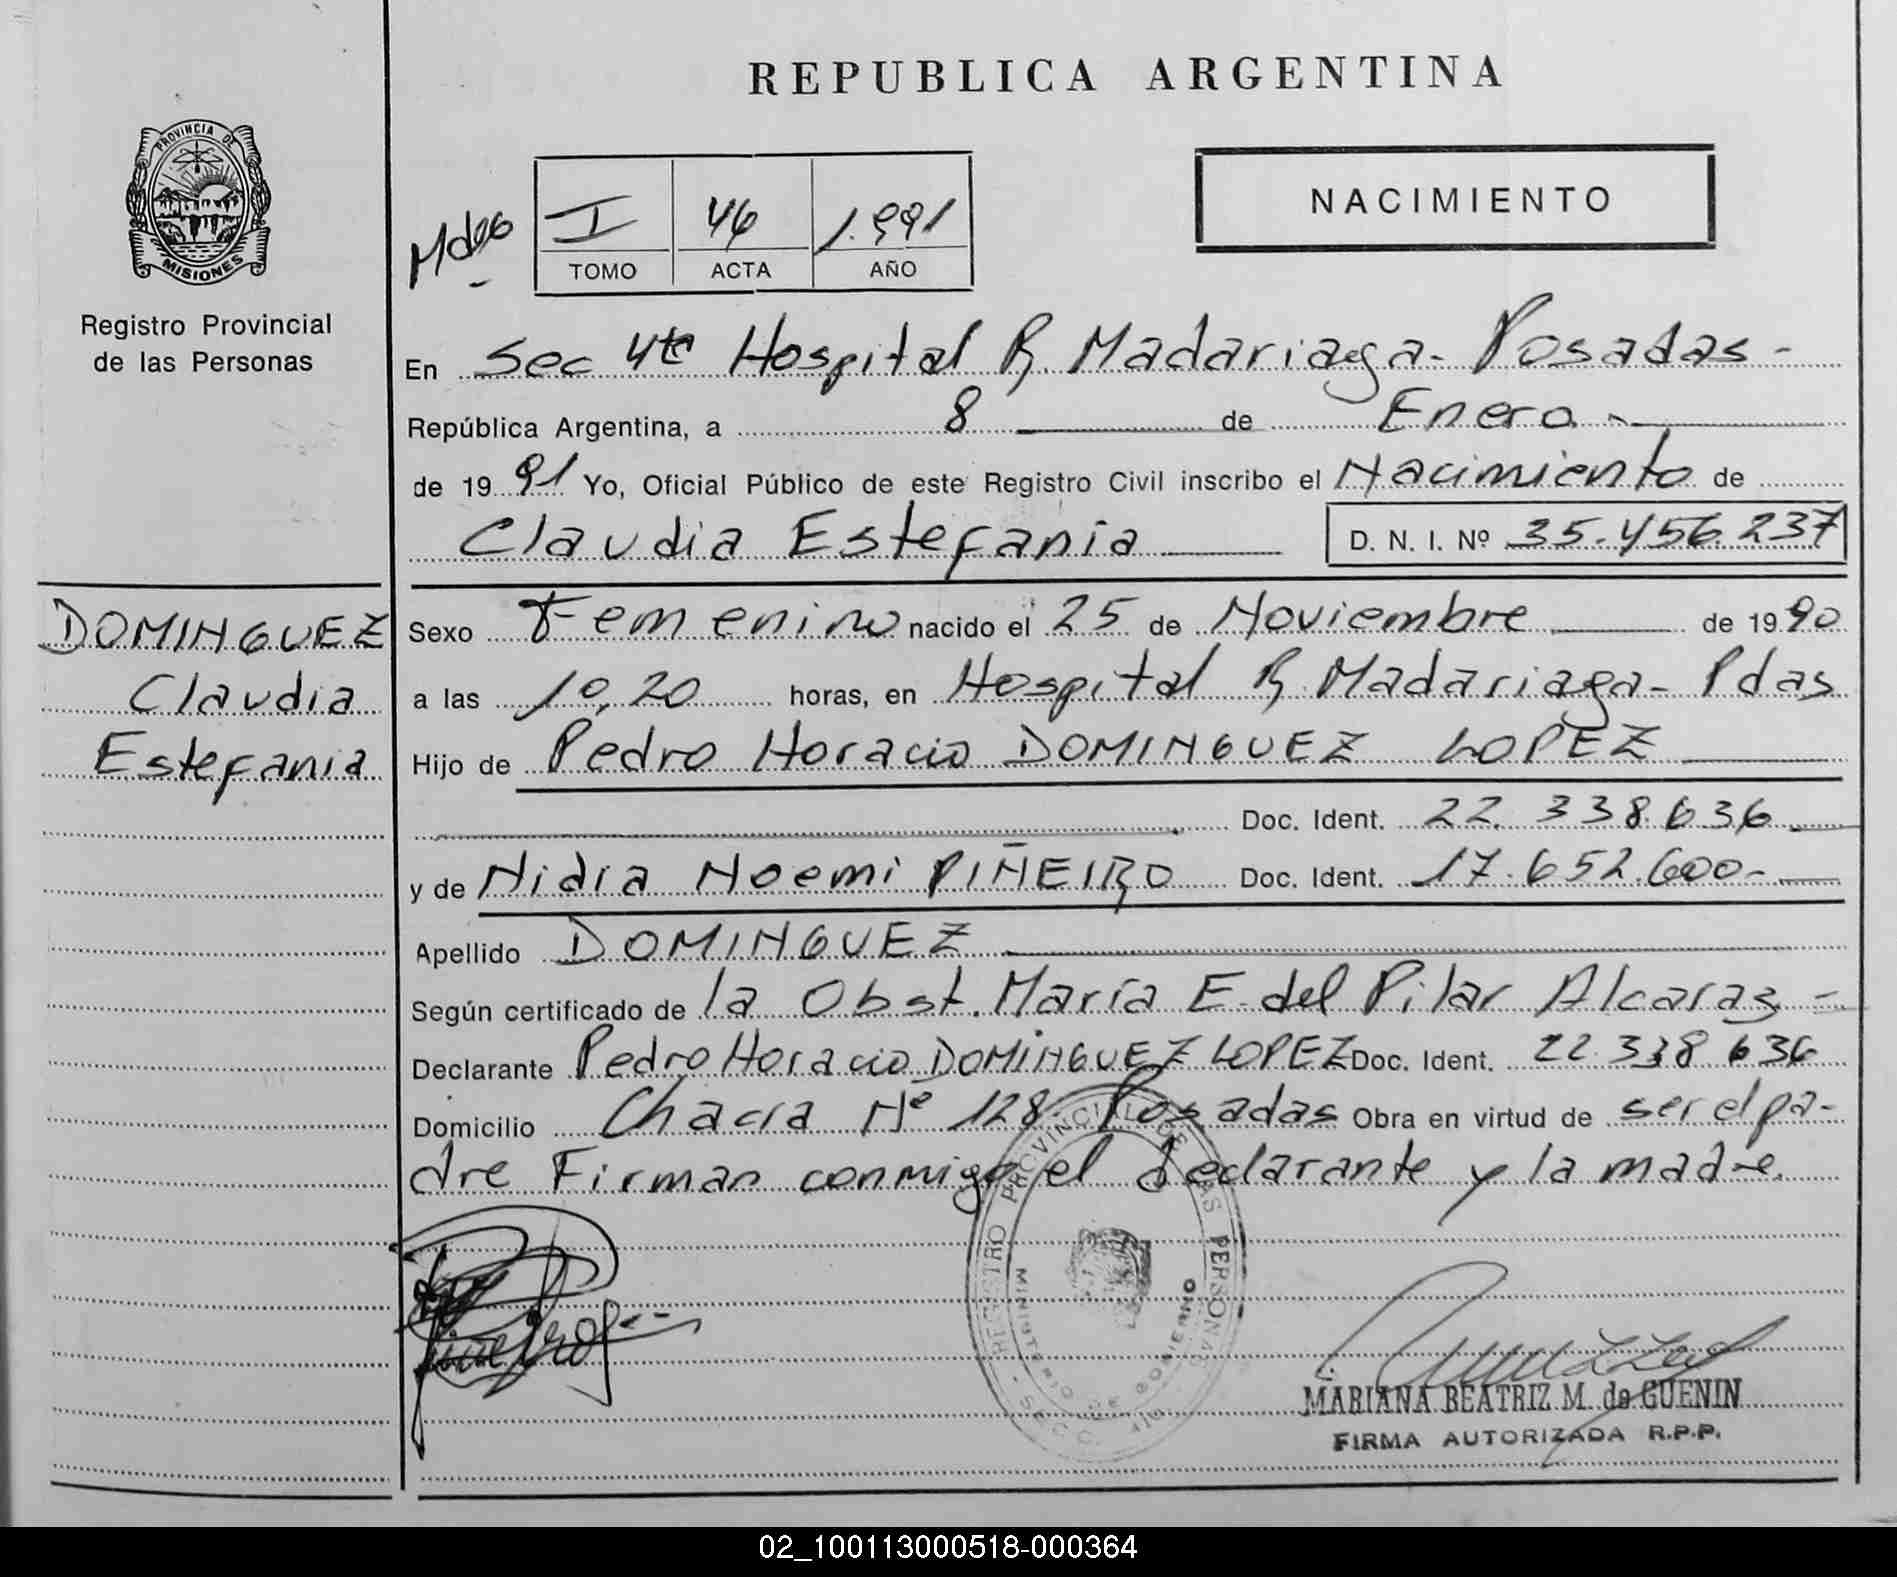 REPUBLICA ARGENTINA
PROVINCIA DE
MISIONES
Registro Provincial
de las Personas
I 46 1.991
TOMO ACTA AÑO
NACIMIENTO
En Sec 4ta Hospital R. Madariaga - Posadas -
República Argentina, a 8 de Enero
de 19 91 Yo, Oficial Público de este Registro Civil inscribo el Nacimiento de
Claudia Estefania D. N. I. Nº 35.456.237
DOMINGUEZ
Claudia
Estefania
Sexo Femenino nacido el 25 de Noviembre de 19 90
a las 10,20 horas, en Hospital R. Madariaga - Pdas
Hijo de Pedro Horacio DOMINGUEZ LOPEZ
Doc. Ident. 22.338.636
y de Nidia Noemi PIÑEIRO Doc. Ident. 17.652.600.-
Apellido DOMINGUEZ
Según certificado de la Obst. María E. del Pilar Alcaraz -
Declarante Pedro Horacio DOMINGUEZ LOPEZ Doc. Ident. 22.338.636
Domicilio Chacra Nº 128 Posadas Obra en virtud de ser el pa-
dre Firman conmigo el declarante y la madre.
REGISTRO PROVINCIAL DE LAS PERSONAS
MINISTERIO DE GOBIERNO
SECC.
MARIANA BEATRIZ M. de GUENIN
FIRMA AUTORIZADA R.P.P.
02_100113000518-000364